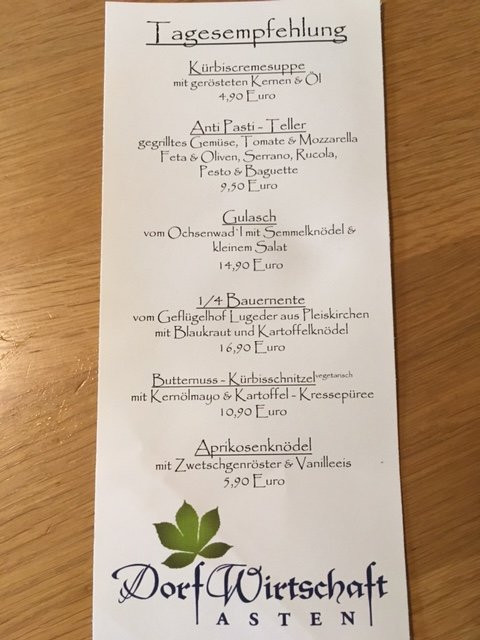 Tagesempfehlung
Kürbiscremesuppe
mit gerösteten Kernen & Öl
4,90 Euro
Anti Pasti - Teller
gegrilltes Gemüse, Tomate & Mozzarella
Feta & Oliven, Serrano, Rucola,
Pesto & Baguette
9,50 Euro
Gulasch
vom Ochsenwad´l mit Semmelknödel &
kleinem Salat
14,90 Euro
1/4 Bauernente
vom Geflügelhof Lugeder aus Pleiskirchen
mit Blaukraut und Kartoffelknödel
16,90 Euro
Butternuss - Kürbisschnitzel vegetarisch
mit Kernölmayo & Kartoffel - Kressepüree
10,90 Euro
Aprikosenknödel
mit Zwetschgenröster & Vanilleeis
5,90 Euro
Dorf Wirtschaft
ASTEN